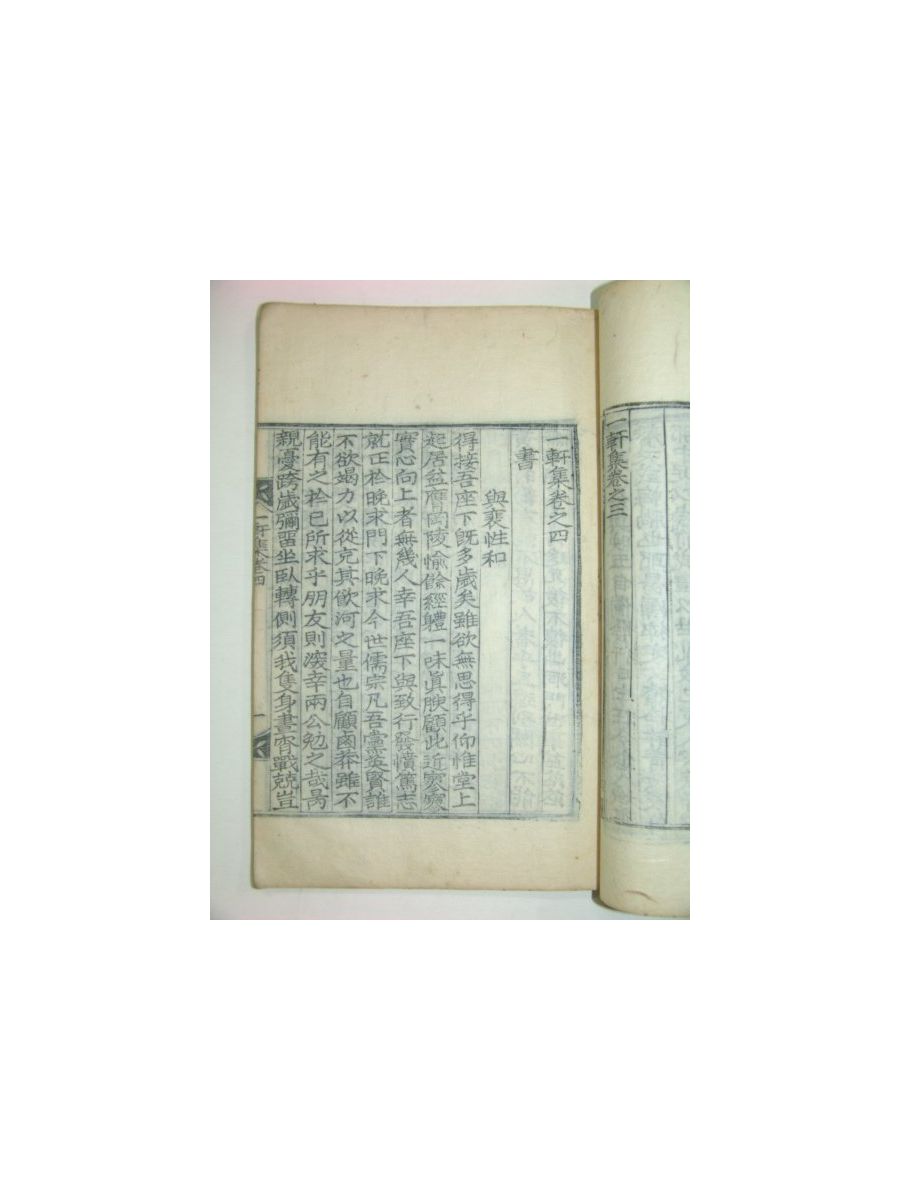 一軒集卷之三
一軒集卷之四
書
與裵性和
得接吾座下旣多歲矣雖欲無思得乎仰惟堂上
起居益膺岡陵愉餘經軆一味眞腴顧此近寥寥
實心向上者無幾人幸吾座下與致行發憤篤志
就正於晚求門下晚求今世儒宗凡吾黨英賢誰
不欲竭力以從充其飮河之量也自顧鹵莽雖不
能有之於已所求乎朋友則深幸兩公勉之哉昺
親憂跨歲彌留坐臥轉側須我隻身晝宵戰兢豈
一軒集卷四
一